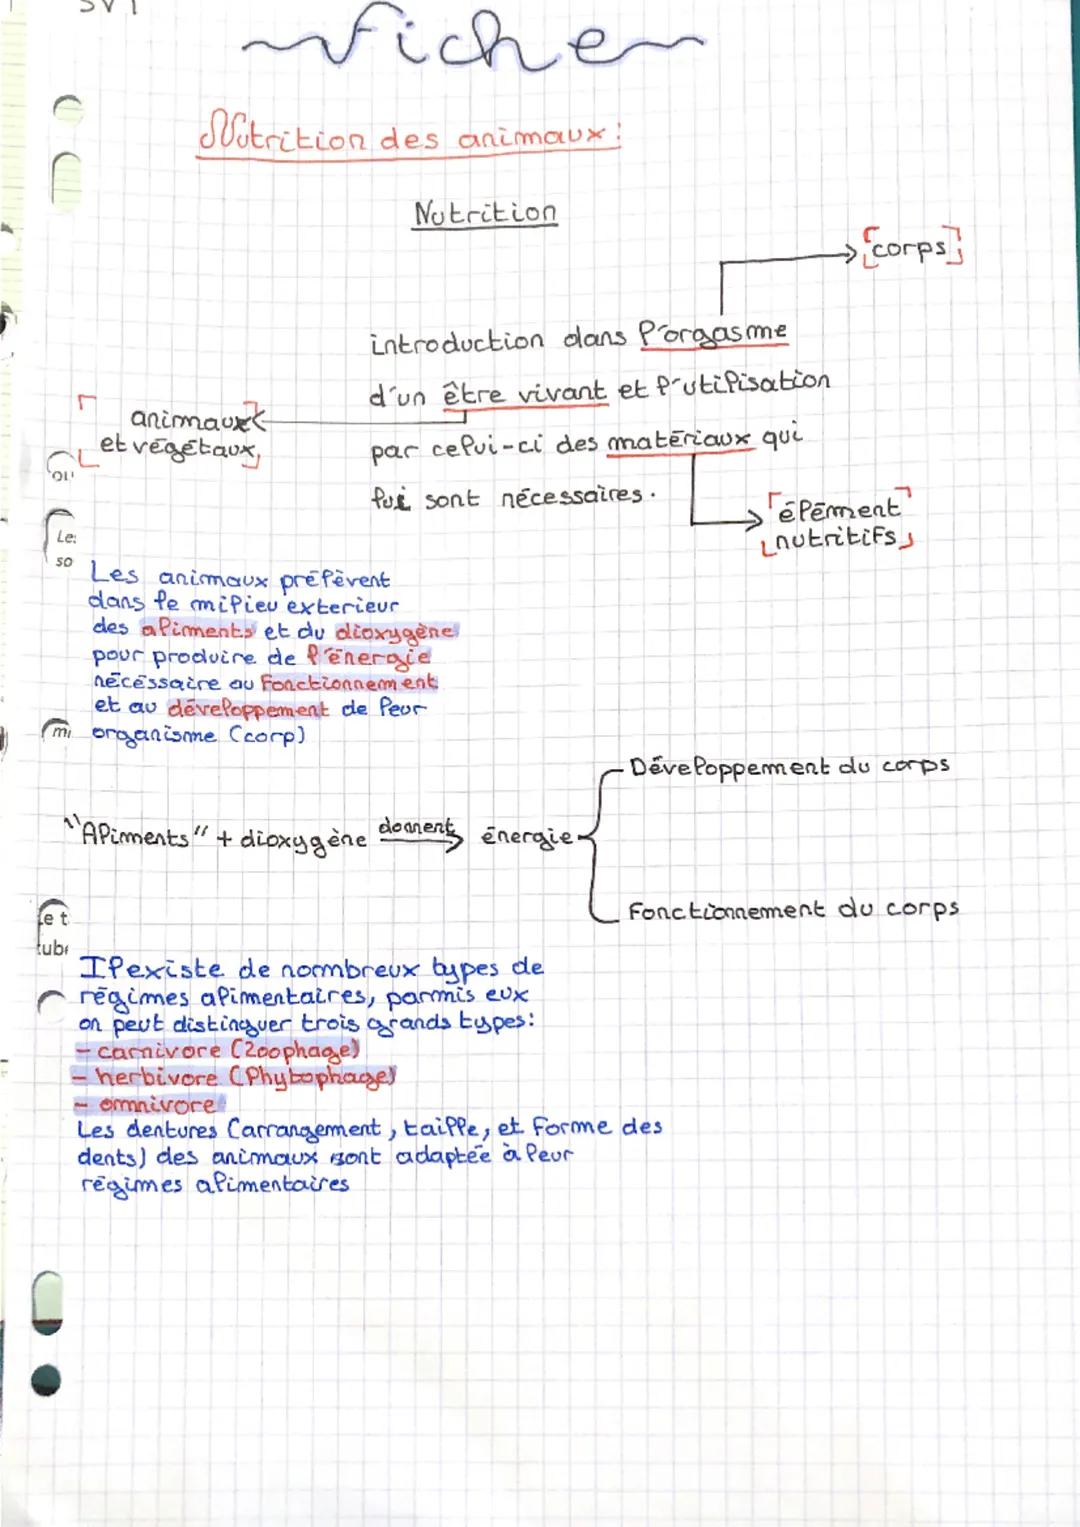 SVT
Fiche
Nutrition des animaux :
Nutrition
[corps]
introduction dans l'orgasme
d'un être vivant et l'utilisation
animaux
et végétaux
par celui-ci des matériaux qui
lui sont nécessaires.
élément
nutritifs
Le
so
Les animaux prélèvent
dans le milieu exterieur
des aliments et du dioxygène
pour produire de l'énergie
nécéssaire au Fonctionnement
et au développement de leur
mi
organisme (corp)
Développement du corps
"Aliments" + dioxygène donnent énergie
Fonctionnement du corps
et
tube
Il existe de nombreux types de
régimes alimentaires, parmis eux
on peut distinguer trois grands types:
- carnivore (Zoophage)
- herbivore (Phytophage)
- omnivore
Les dentures (arrangement, taille, et Forme des
dents) des animaux sont adaptée à leur
régimes alimentaires